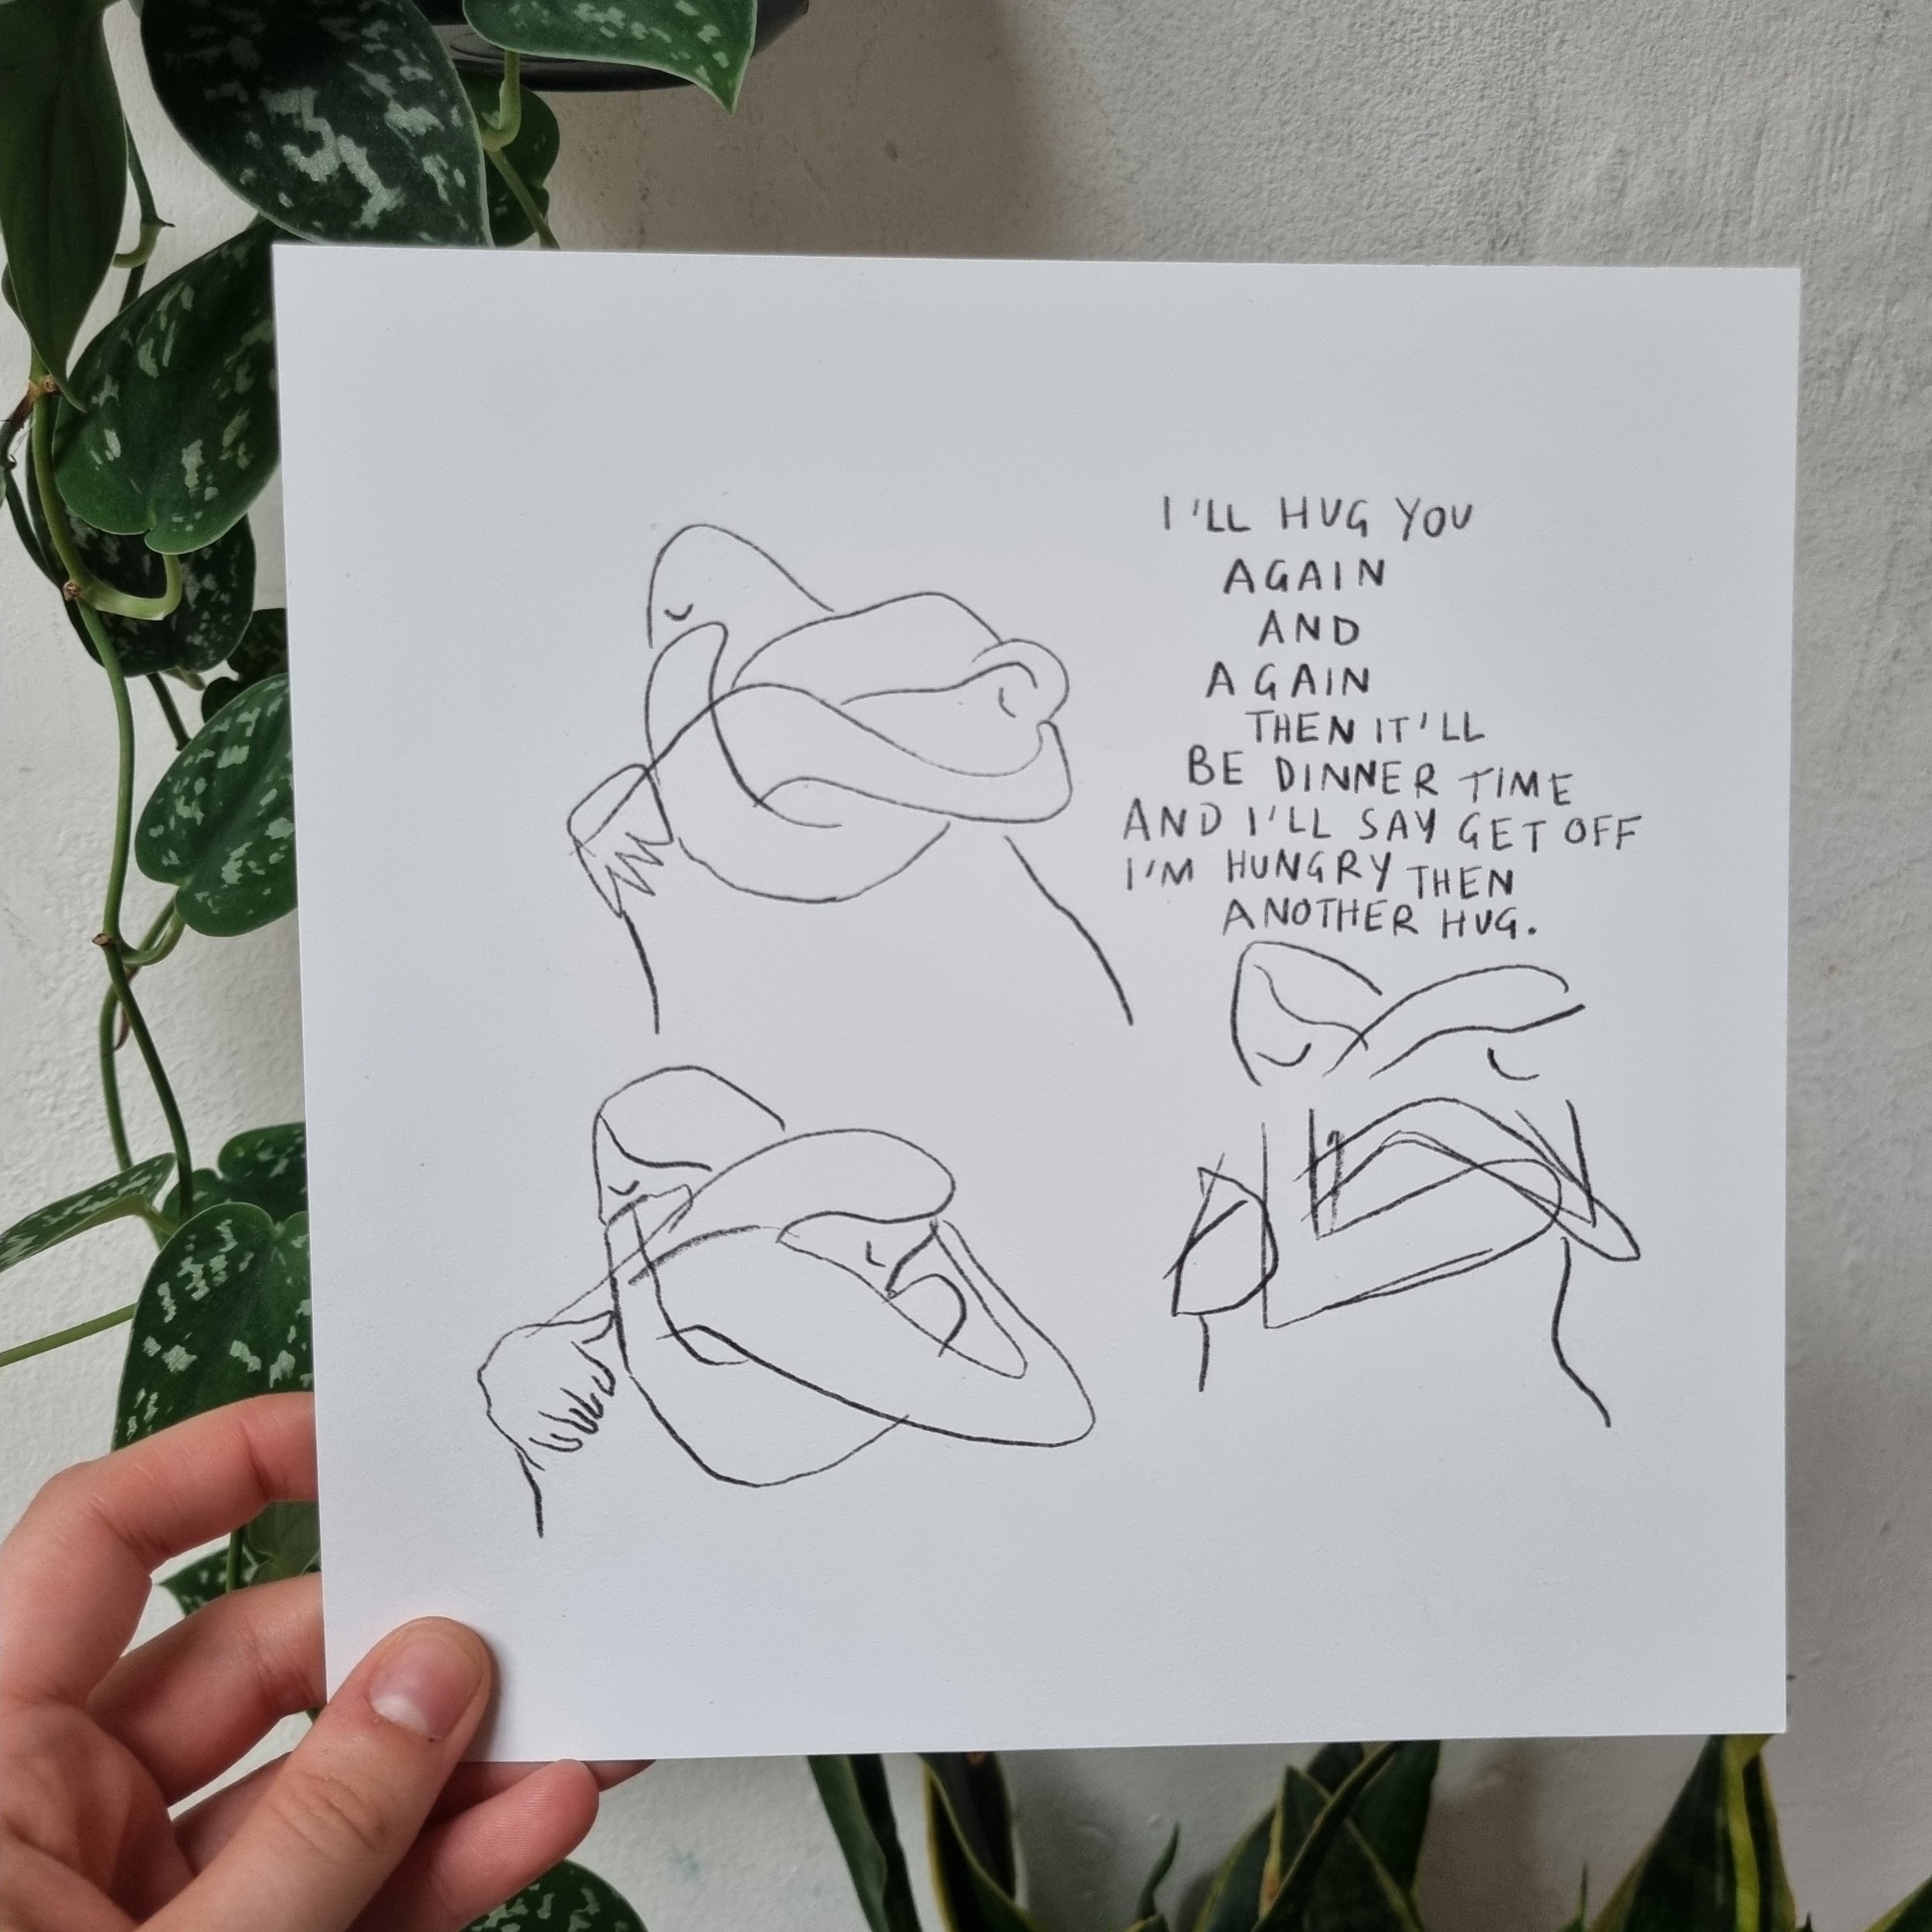 I'LL HUG YOU
AGAIN
AND
AGAIN
THEN IT'LL
BE DINNER TIME
AND I'LL SAY GET OFF
I'M HUNGRY THEN
ANOTHER HUG.